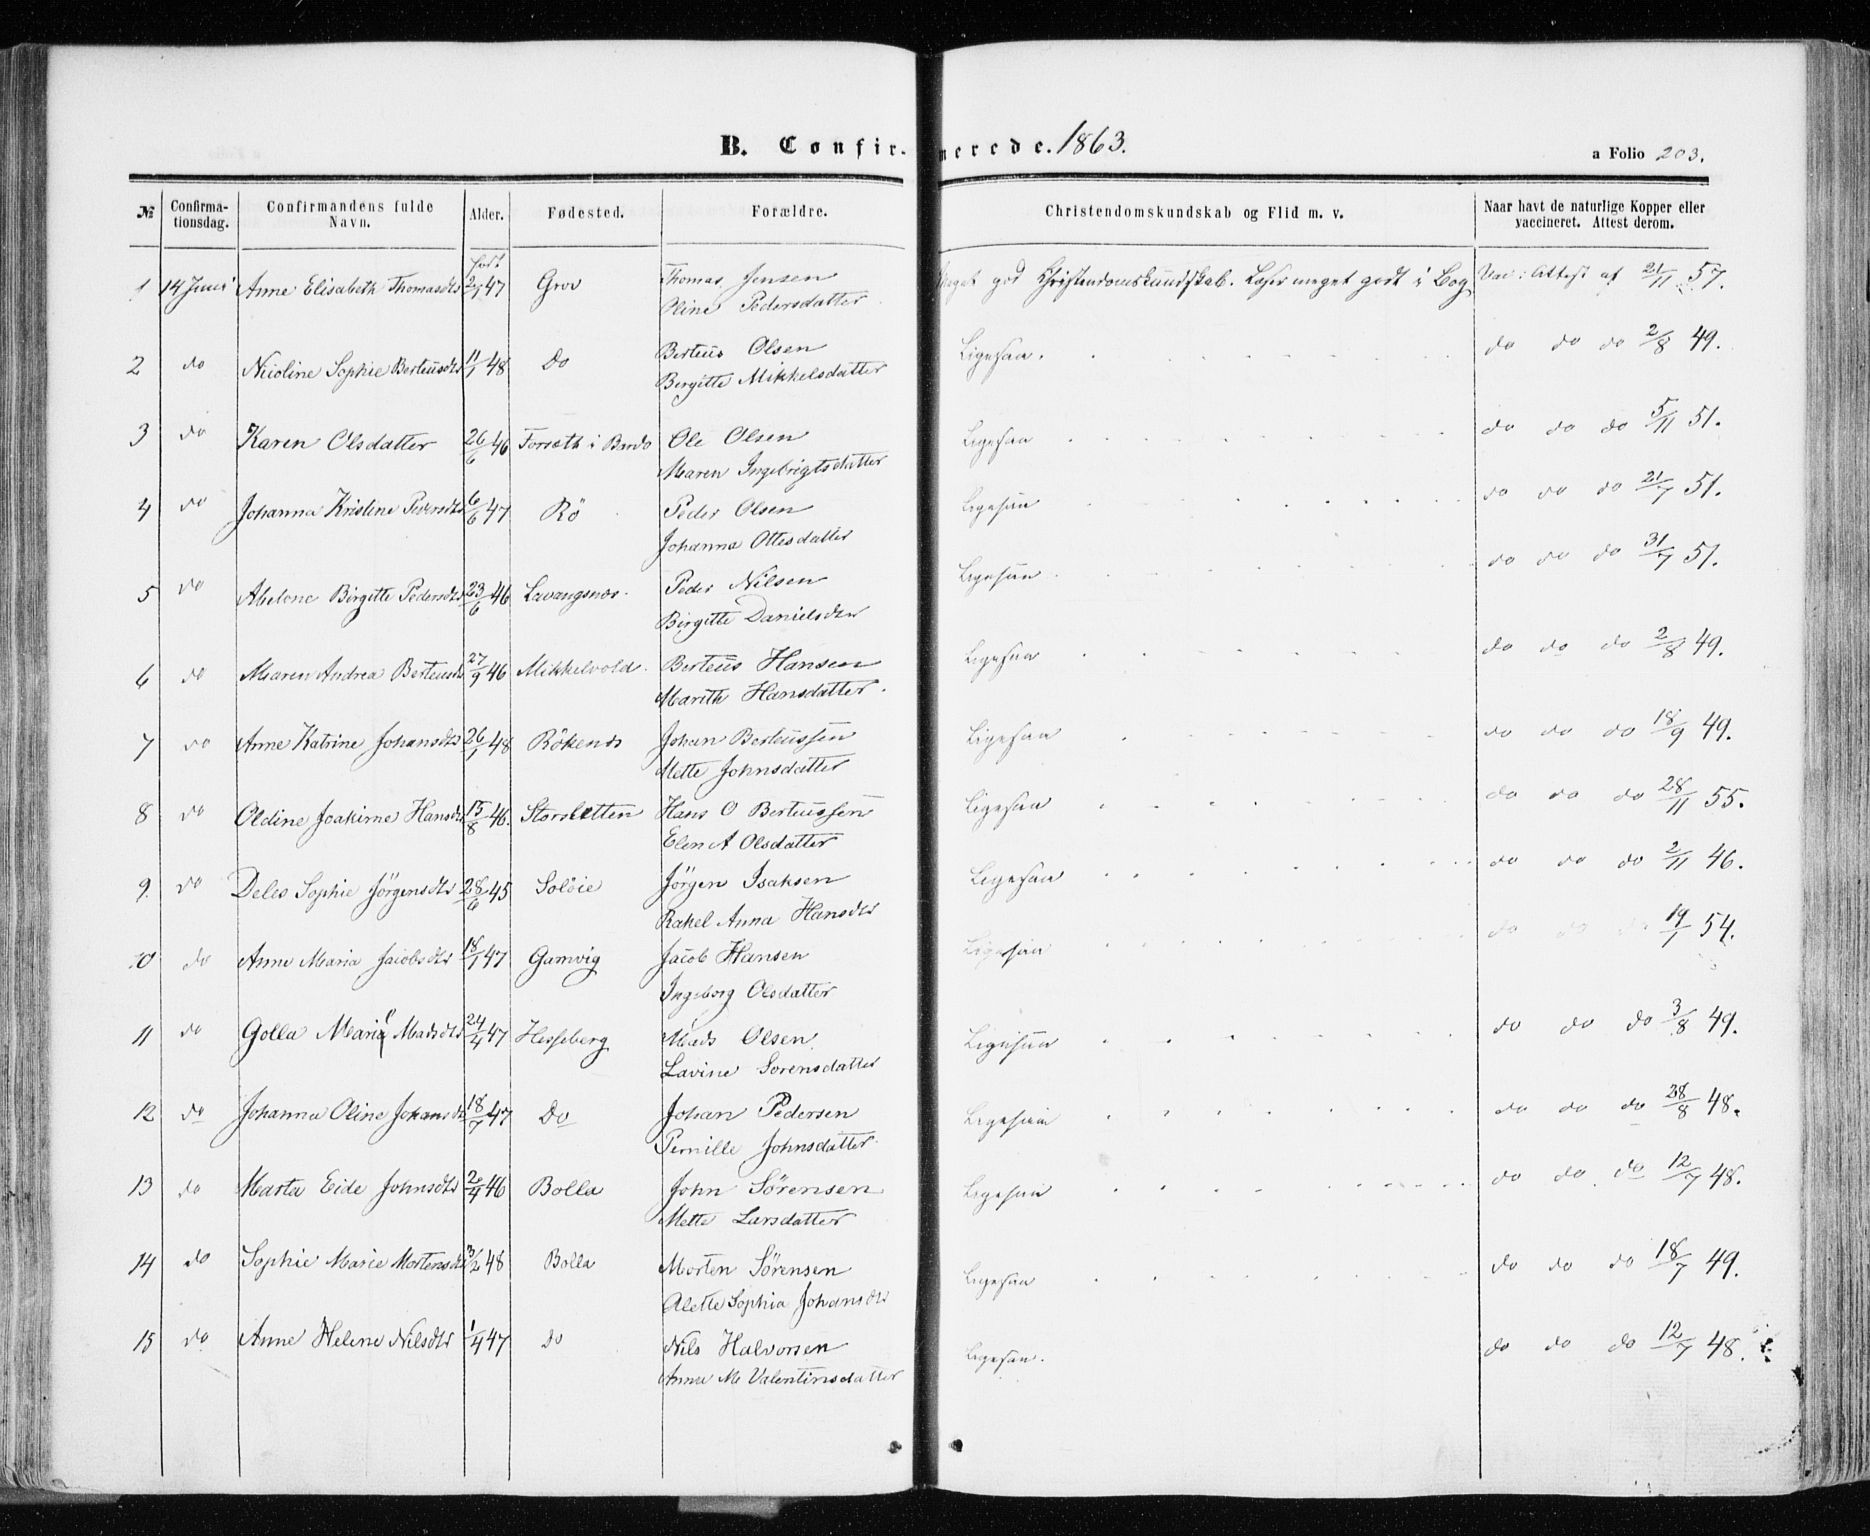 B. Confir- merede. 1863.
a Folio 203.
№ Confirma-tionsdag. Confirmandens fulde Navn. Alder. Fødested. Forældre. Christendomskundskab og Flid m. v. Naar havt de naturlige Kopper eller vaccineret. Attest derom.
født
1 14 Juni Anne Elisabeth Thomasdtr 2/1 47 Grov Thomas Jensen Meget god Christendomskundskab. Læser meget godt i Bog Vac: Attest af 21/11 57.
Oline Pedersdatter
2 do Nicoline Sophie Berteusdtr 11/1 48 Do Berteus Olsen Ligesaa. do do do 2/8 49.
Birgitte Mikkelsdatter
3 do Karen Olsdatter 26/6 46 Forseth i Bardo Ole Olsen Ligesaa do do do 5/11 51.
Maren Ingebrigtsdatter
4 do Johanna Kristine Pedersdtr 6/6 47 Rö Peder Olsen Ligesaa do do do 21/7 51.
Johanna Ottesdatter
5 do Abelone Birgitte Pedersdtr 23/6 46 Lavangsnæs. Peder Nilsen Ligesaa do do do 31/7 51.
Birgitte Danielsdtr
6 do Maren Andrea Berteusdtr 27/9 46 Mikkelvold. Berteus Hansen Ligesaa do do do 2/8 49.
Marith Hansdatter.
7 do Anne Katrine Johansdtr 26/1 48 Rökenes Johan Berteussen Ligesaa do do do 18/9 49.
Mette Johnsdatter
8 do Oldine Joakime Hansdtr 15/8 46. Storsletten Hans O Berteussen Ligesaa do do do 28/11 55.
Elen A Olsdatter
9. do Deles Sophie Jörgensdtr 28/6 45 Soløie Jörgen Isaksen Ligesaa do do do 2/11 46.
Rakel Anna Hansdtr
10 do Anne Maria Jacobsdtr 18/1 47 Gamvig Jacob Hansen Ligesaa do do do 19/1 54.
Ingeborg Olsdatter
11 do Golla Marie Madsdtr 24/4 47 Hesseberg Mads Olsen Ligesaa do do do 3/8 49.
Lavine Sorensdatter
12 do Johanna Oline Johansdtr 18/7 47 Do Johan Pedersen Ligesaa do do do 28/8 48.
Pernille Johnsdatter
13 do Marta Eide Johnsdtr 2/4 46 Bolla John Sörensen Ligesaa do do do 12/7 48.
Mette Larsdatter
14 do Sophie Marie Mortensdtr 3/2 48 Bolla Morten Sörensen Ligesaa do do do 18/7 49.
Alette Sophia Johansdtr
15 do Anne Helene Nilsdtr 1/4 47 do Nils Halvorsen Ligesaa. do do do 12/7 48.
Anna M Valentinsdatter